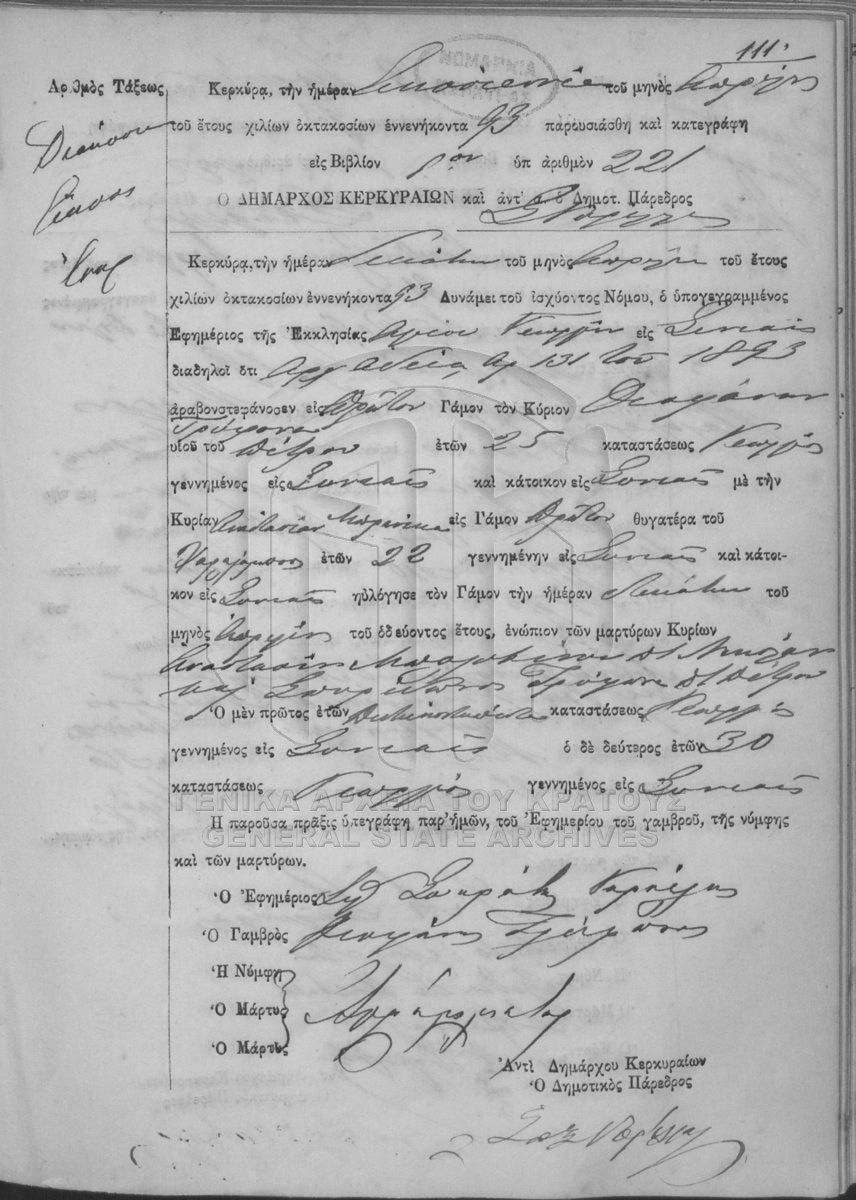 111.
Αριθμὸς Τάξεως
Διακόσια
Εἴκοσι
Ἕνα
Κερκύρα, τὴν ἡμέραν τοῦ μηνὸς Ἀπριλίου
τοῦ ἔτους χιλίων ὀκτακοσίων ἐννενήκοντα 93 παρουσιάσθη καὶ κατεγράφη
εἰς Βιβλίον 1ον ὑπ ἀριθμὸν 221
Ο ΔΗΜΑΡΧΟΣ ΚΕΡΚΥΡΑΙΩΝ καὶ ἀντ' α. ὁ Δημοτ. Πάρεδρος
Κερκύρα, τὴν ἡμέραν Δεκάτην τοῦ μηνὸς Ἀπριλίου τοῦ ἔτους
χιλίων ὀκτακοσίων ἐννενήκοντα 93 Δυνάμει τοῦ ἰσχύοντος Νόμου, ὁ ὑπογεγραμμένος
Εφημέριος τῆς Ἐκκλησίας Ἁγίου Γεωργίου εἰς Συνιαῖς
διαδηλοῖ ὅτι Αρχ Αδεία, Αρ 131 του 1893
ἀραβονστεφάνοσεν εἰς Πρῶτον Γάμον τὸν Κύριον Θεοφάνην
Τρύφωνα
υἱοῦ τοῦ Πέτρου ἐτῶν 25 καταστάσεως Γεωργὸς
γεννημένος εἰς Συνιαῖς καὶ κάτοικον εἰς Συνιαῖς μὲ τὴν
Κυρίαν Ἀναστασίαν εἰς Γάμον Πρῶτον θυγατέρα τοῦ
Χαραλάμπους ἐτῶν 22 γεννημένην εἰς Συνιαῖς καὶ κάτοι-
κον εἰς Συνιαῖς ηὐλόγησε τὸν Γάμον τὴν ἡμέραν Δεκάτην τοῦ
μηνὸς Ἀπριλίου τοῦ ὁδεύοντος ἔτους, ἐνώπιον τῶν μαρτύρων Κυρίων
Ἀναστασίου
καὶ Σπυρίδωνος Τρύφωνα Πέτρου
Ὁ μὲν πρῶτος ἐτῶν καταστάσεως Γεωργὸς
γεννημένος εἰς Συνιαῖς ὁ δὲ δεύτερος ἐτῶν 30
καταστάσεως Γεωργὸς γεννημένος εἰς Συνιαῖς
ΓΕΝΙΚΑ ΑΡΧΕΙΑ ΤΟΥ ΚΡΑΤΟΥΣ
GENERAL STATE ARCHIVES
Η παροῦσα πρᾶξις ὑπεγράφη παρ' ἡμῶν, τοῦ Ἐφημερίου τοῦ γαμβροῦ, τῆς νύμφης
καὶ τῶν μαρτύρων.
Ὁ Ἐφημέριος
Ὁ Γαμβρὸς Θεοφάνης
Ἡ Νύμφη
Ὁ Μάρτυς Ἀγράμματοι
Ὁ Μάρτυς
Ἀντὶ Δημάρχου Κερκυραίων
Ὁ Δημοτικὸς Πάρεδρος